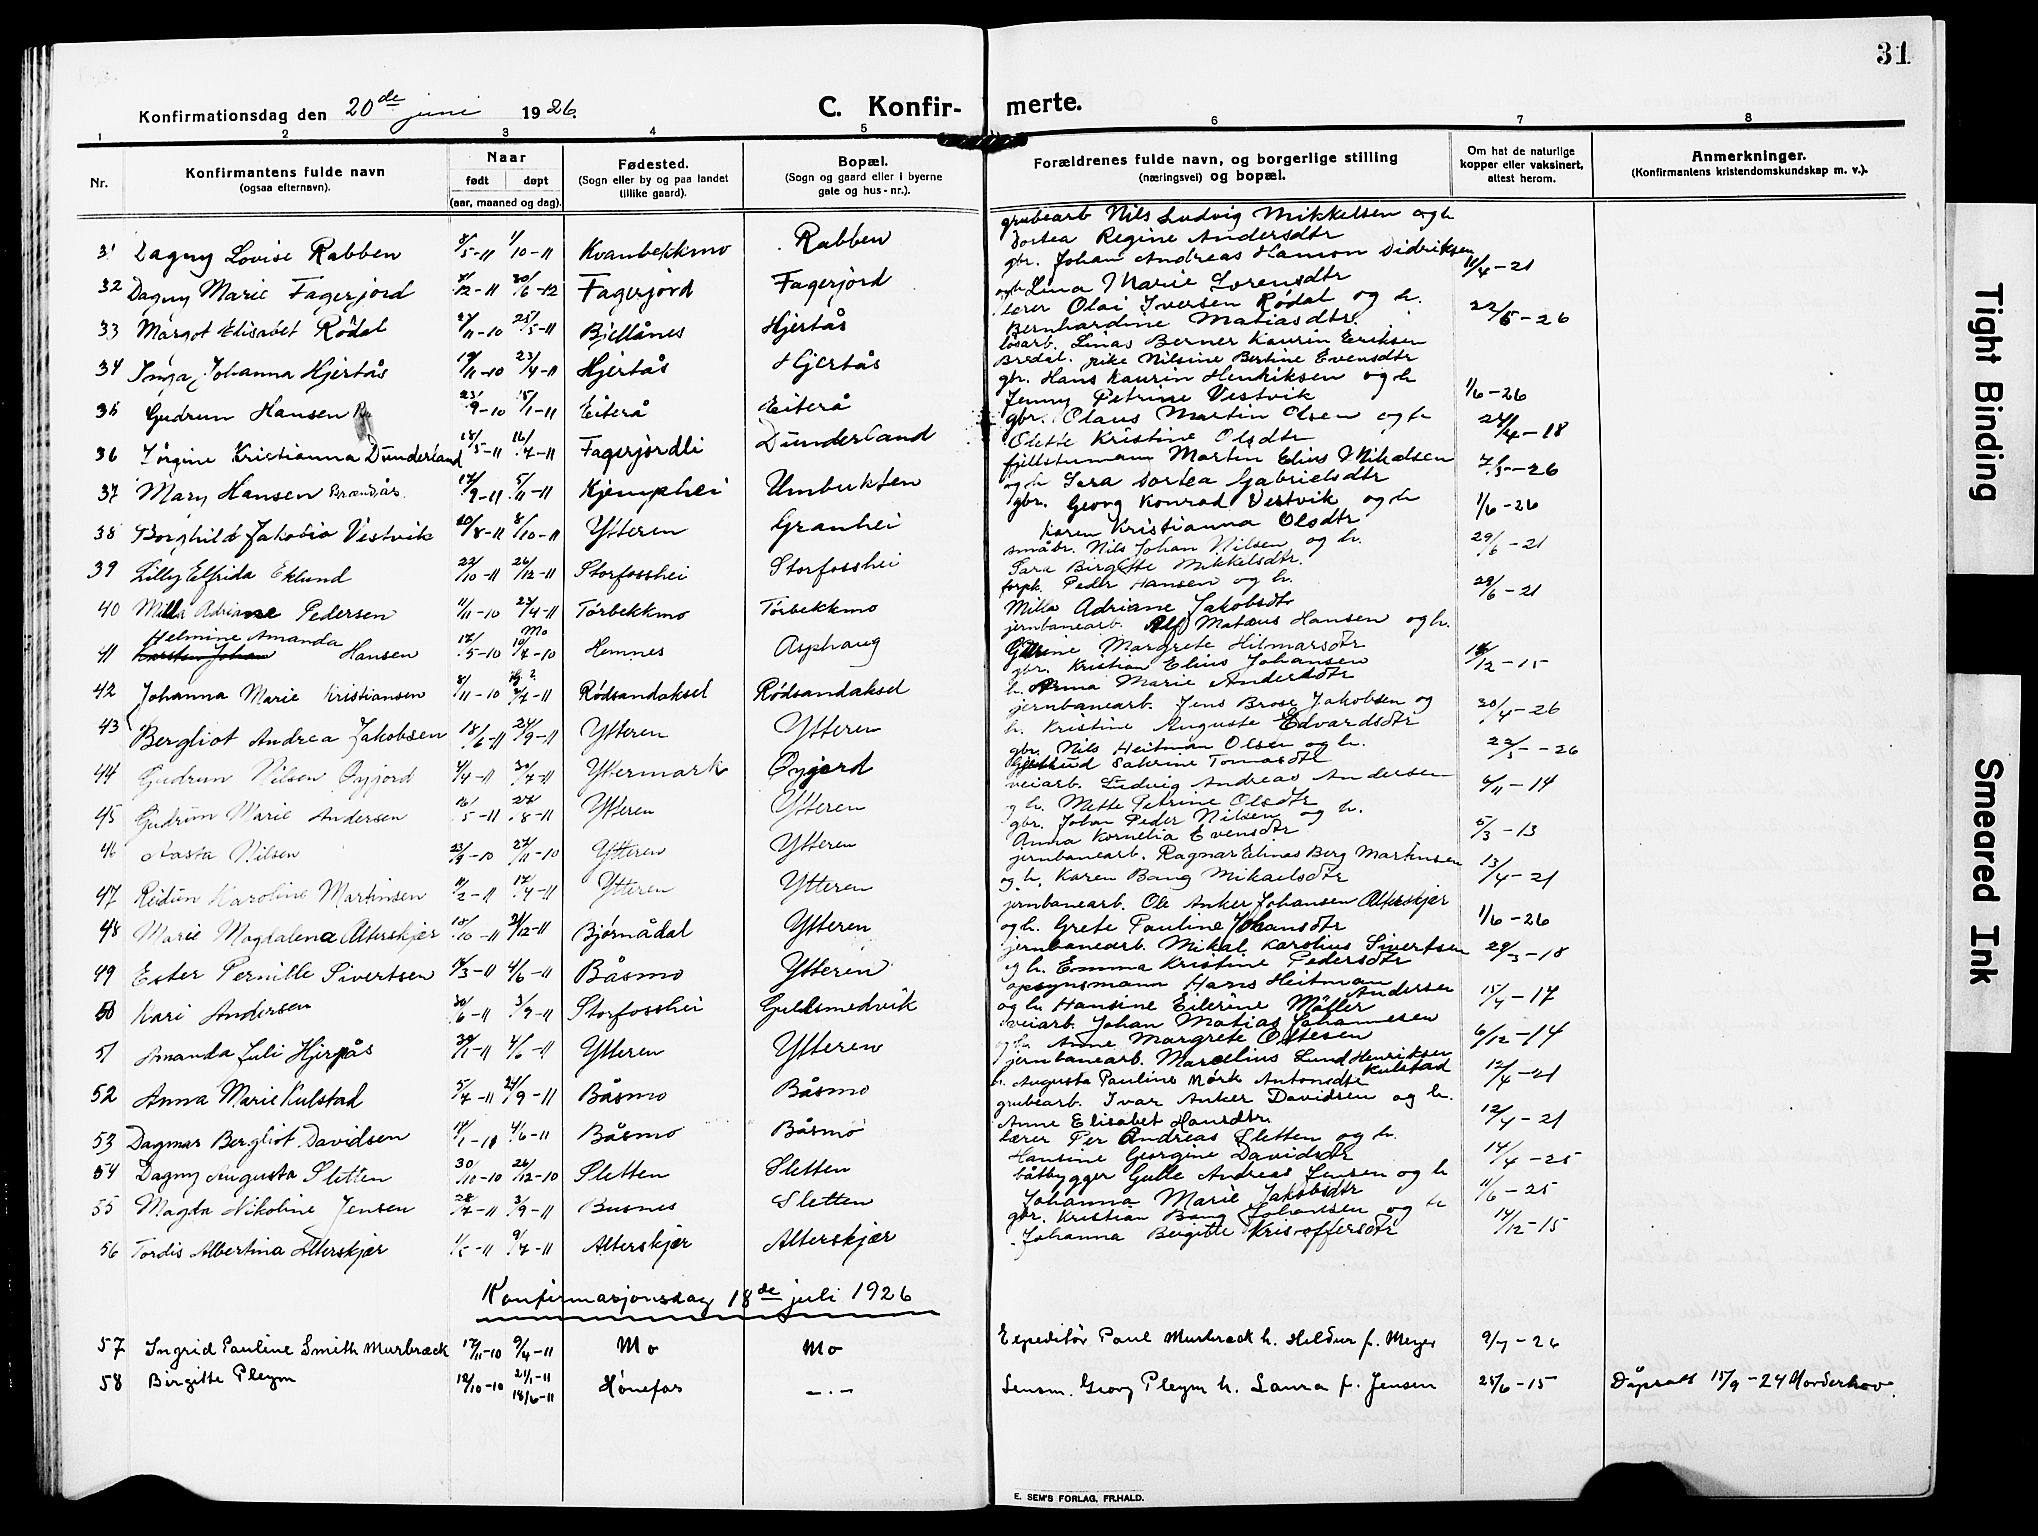 31
Konfirmationsdag den 20de juni 1926. C. Konfir- merte.
1 2 3 4 5 6 7 8
Nr. Konfirmantens fulde navn (ogsaa efternavn). Naar født døpt (aar, maaned og dag). Fødested. (Sogn eller by og paa landet tillike gaard). Bopæl. (Sogn og gaard eller i byerne gate og hus-nr.). Forældrenes fulde navn, og borgerlige stilling (næringsvei) og bopæl. Om hat de naturlige kopper eller vaksinert, attest herom. Anmerkninger. (Konfirmantens kristendomskundskap m. v.).
31 Dagny Lovise Rabben 8/5-11 1/10-11 Kvanbekkmo Rabben grubearb Nils Ludvig Mikkelsen og h. Dortea Regine Andersdtr
32 Dagny Marie Fagerjord /12-11 30/6-12 Fagerjord Fagerjord gbr. Johan Andreas Hamon Didriksen og h. Lina Marie Lorensdtr 11/4-21
33 Margot Elisabet Rødal 27/11-10 25/5-11 Bjellånes Hjertås lærer Olai Iversen Rødal og h. Bernhardine Matiasdtr. 22/5-26
34 Inga Johanna Hjertås 19/11-10 23/4-11 Hjertås Hjertås løsarb. Linas Berner Kaurin Eriksen Bredal. pike Nilsine Bertine Evensdtr
35 Gudrun Hansen 23/9-10 15/1-11 Eiterå Eiterå gbr. Hans Kaurin Henriksen og h Jenny Petrine Vestvik 1/6-26
36 Jørgine Kristianna Dunderland 18/5-11 16/7-11 Fagerjordli Dunderland gbr. Olaus Martin Olsen og h Olette Kristine Olsdtr 24/4-18
37 Mary Hansen Brændås. 17/9-11 5/11-11 Kjemphei Umbukten fjellstumann Martin Elius Mikalsen og h Sara Dortea Gabrielsdtr 7/5-26
38 Borghild Jakobia Vestvik 20/8-11 8/10-11 Ytteren Granhei gbr. Georg Konrad Vestvik og h Karen Kristianna Olsdtr 1/6-26
39 Lilly Elfrida Eklund 22/10-11 26/12-11 Storfosshei Storfosshei småbr. Nils Johan Nilsen og h. Sara Birgitte Mikkelsdtr. 29/6-21
40 Milla Adriane Pedersen 11/11-10 23/4-11 Tørbekkmo Tørbekkmo forpk. Peder Hansen og h. Milla Adriane Jakobsdtr 28/6-21
41 Helmine Amanda Karsten Johan Hansen 17/5-10 Mo 10/7-10 Hemnes Asphaug jernbanearb. Alf Mateus Hansen og h. Margrete Hilmarsdtr
42 Johanna Marie Kristiansen 8/11-10 2/7-11 Rødsandaksel Rødsandaksel gbr. Kristian Elius Johansen h. Anna Marie Andersdtr 14/12-15
43 Bergliot Andrea Jakobsen 18/6-11 24/9-11 Ytteren Ytteren jernbanearb. Jens Brose Jakobsen og h. Kristine Auguste Edvardsdtr 30/4-26
44 Gudrun Nilsen Øyjord 4/4-11 30/7-11 Yttermark Øyjord gbr. Nils Heitman Olsen og h. Gjertrud Satrine Tomasdtr 22/5-26
45 Gudrun Marie Andersen 16/5-11 27/8-11 Ytteren Ytteren veiarb. Ludvig Andreas Andersen og h. Mette Petrine Olsdtr 6/11-14
46 Aasta Nilsen 23/9-10 27/11-10 Ytteren Ytteren gbr. Johan Peder Nilsen og h. Anna Kornelia Evensdtr 5/3-13
47 Reidun Karoline Martinsen 11/2-11 17/4-11 Ytteren Ytteren jernbanearb. Ragnar Elinas Berg Martinsen og h. Karen Bang Mikaelsdtr 13/4-21
48 Marie Magdalena Alterskjær 15/10-11 31/12-11 Bjørnådal Ytteren jernbanearb. Ole Anker Johansen Alterskjær og h. Grete Pauline Johansdtr 1/6-26
49 Ester Pernille Sivertsen 17/3-11 4/6-11 Båsmo Ytteren jernbanearb. Mikal Karolius Sivertsen og h. Emma Kristine Pedersdtr 29/3-18
50 Kari Andersen 30/6-11 3/9-11 Storfosshei Guldsmedvik opsynsmann Hans Heitman Andersen og h. Hansine Eilerine Møller 15/4-17
51 Amanda Juli Hjerpås 30/1-11 4/6-11 Ytteren Ytteren veiarb. Johan Matias Johannesen og h. Anne Margrete Oltesen 6/12-14
52 Anna Marie Kulstad 5/7-11 24/9-11 Båsmo Båsmo jernbanearb. Marcelius Lund Henriksen Kulstad h. Augusta Pauline Mørk Antonsdtr 12/4-21
53 Dagmar Bergliot Davidsen 14/1-11 4/6-11 Båsmo Båsmo grubearb. Ivar Anker Davidsen og h. Anne Elisabet Hansdtr 12/4-21
54 Dagny Augusta Sletten 30/10-10 26/12-10 Sletten Sletten lærer Per Andreas Sletten og h. Hansine Georgine Davidsdtr 14/4-25
55 Magda Nikoline Jensen 28/7-11 3/9-11 Busnes Sletten båtbygger Gulle Andreas Jensen og h Johanna Marie Jakobsdtr 11/6-25
56 Tordis Albertina Alterskjær 1/5-11 9/7-11 Alterskjær Alterskjær gbr. Kristian Bang Johansen og h Johanna Bergitte Kristoffersdtr 14/12-15
Konfirmasjonsdag 18de juli 1926
57 Ingrid Pauline Smith Murbræck 17/11-10 9/4-11 Mo Mo Expeditør Paul Murbræck h. Hildur f. Meyer 9/7-26
58 Birgitte Pleym 12/10-10 21/1-11 18/6-11 Hønefos -.- Lensm. Georg Pleym h. Laura f. Jensen 25/6-15 Dåpsatt 15/9-24 Norderhov.
E. SEM'S FORLAG, FR.HALD.
Tight Binding
Smeared Ink